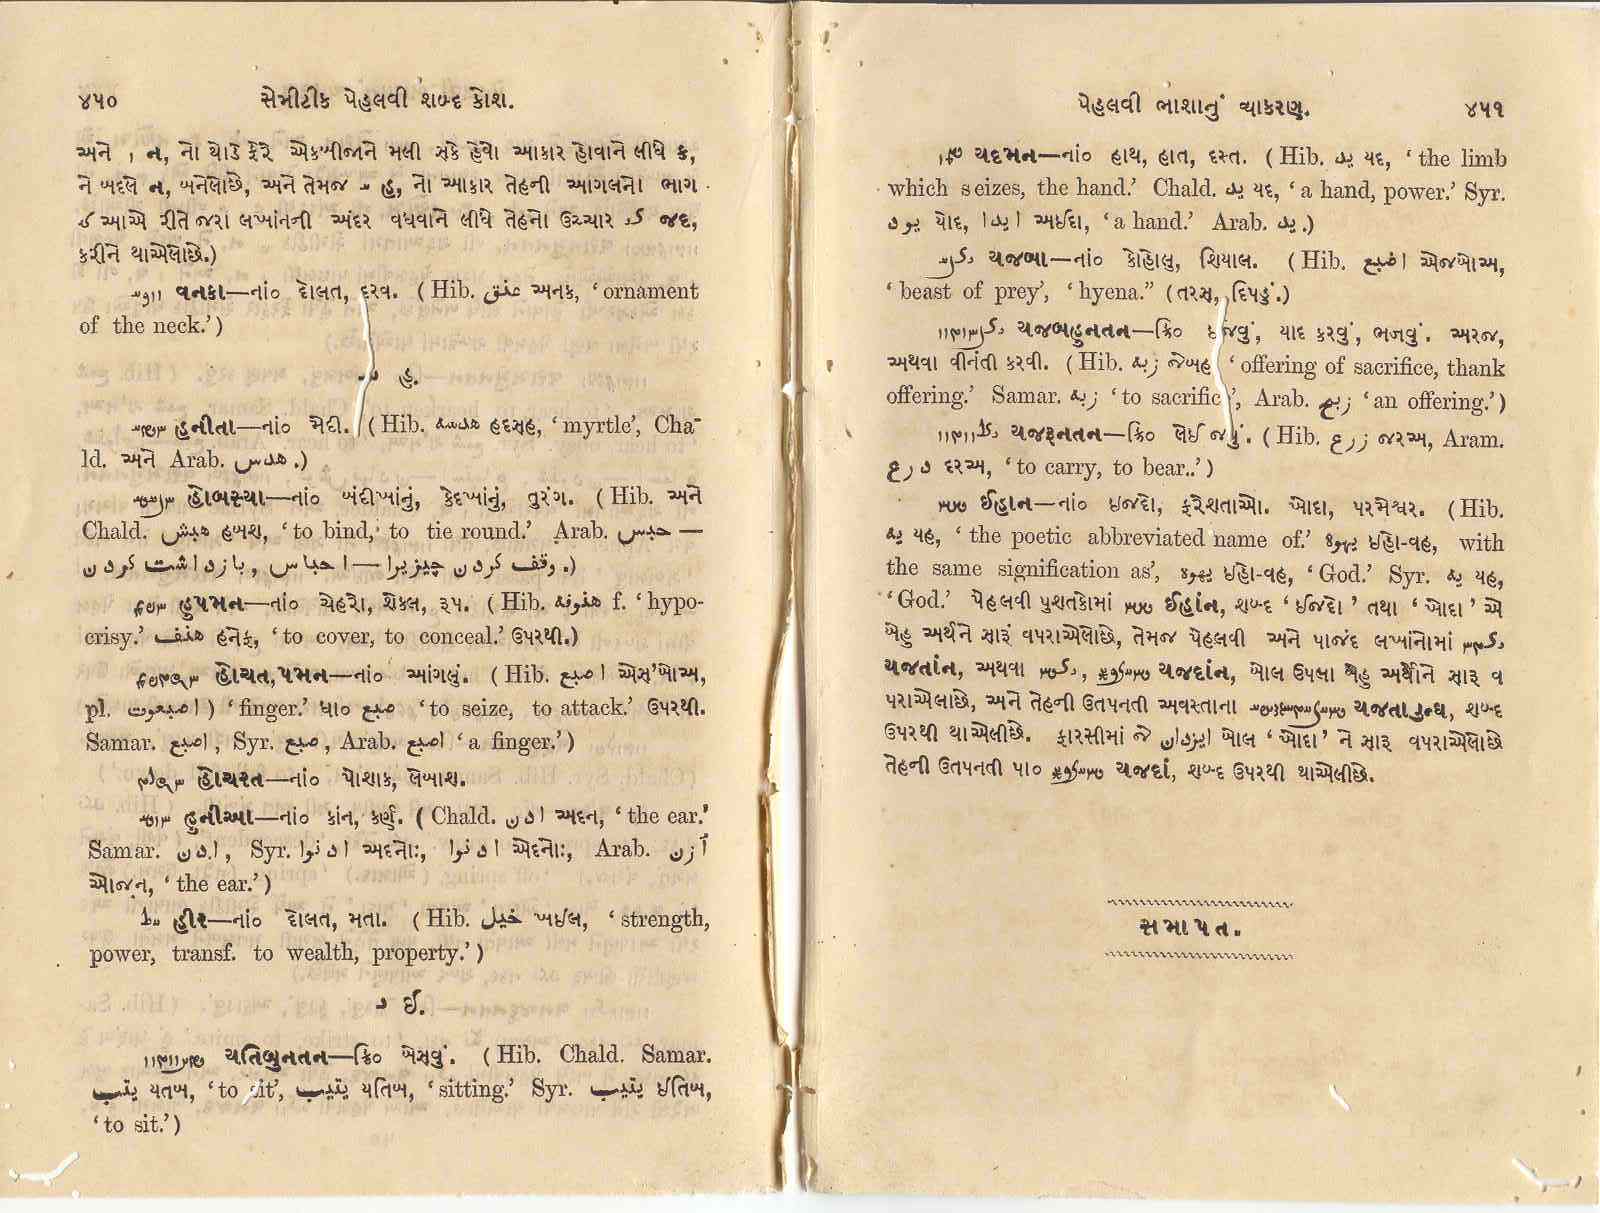 ૪૫૦ સેમીટીક પેહલવી શબ્દ કોશ.
અને ૧ ન, નો થોડે ફેરે એકબીજાને મલી સકે હેવો આકાર હોવાને લીધે ક,
ને બદલે ન, બનેલોછે, અને તેમજ હ, નો આકાર તેહની આગલનો ભાગ
આએ રીતે જરા લખાંનની અંદર વધવાને લીધે તેહનો ઉચ્ચાર જદ,
કરીને થાએલોછે.)
વનકા—નાં૦ દોલત, દરવ. (Hib. عنق અનક, ‘ornament
of the neck.’)
હ.
હનીતા—નાં૦ મેદી. (Hib. هدسه હદસહ, ‘myrtle’, Cha-
ld. અને Arab. هدس.)
હોબસ્યા—નાં૦ બંદીખાંનું, કેદખાંનું, તુરંગ. (Hib. અને
Chald. هبش હબશ, ‘to bind,’ to tie round.’ Arab. حبس —
وقف کردن چیزیرا — احباس , بازداشت کردن.)
હુપમન—નાં૦ ચેહરો, શેકલ, રૂપ. (Hib. هنوفه f. ‘hypo-
crisy.’ هنف હનેફ, ‘to cover, to conceal.’ ઉપરથી.)
હોચત,પમન—નાં૦ આંગલું. (Hib. اصبع એસ’બોઅ,
pl. اصبعوت) ‘finger.’ ધા૦ صبع ‘to seize, to attack.’ ઉપરથી.
Samar. اصبع, Syr. صبع, Arab. اصبع ‘a finger.’)
હોચરત—નાં૦ પોશાક, લેબાશ.
હુનીઆ—નાં૦ કાંન, કર્ણ. (Chald. ادن અદન, ‘the ear.’
Samar. ادن, Syr. ادنوا અદનોઃ, ادنوا એદનોઃ, Arab. اُزن
ઓજ઼ન, ‘the ear.’)
હીર—નાં૦ દોલત, મતા. (Hib. خیل ખઈલ, ‘strength,
power, transf. to wealth, property.’)
ઈ.
યતિબુનતન—ક્રિ૦ બેસવું. (Hib. Chald. Samar.
یتب યતબ, ‘to sit’, یتیب યતિબ, ‘sitting.’ Syr. یتیب ઈતિબ,
‘to sit.’)
પેહલવી ભાશાનું વ્યાકરણ. ૪૫૧
યદમન—નાં૦ હાથ, હાત, દસ્ત. (Hib. ید યદ, ‘the limb
which seizes, the hand.’ Chald. ید યદ, ‘a hand, power.’ Syr.
یود યોદ, ایدا અઈદા, ‘a hand.’ Arab. ید.)
યજબા—નાં૦ કોહોલુ, શિયાલ. (Hib. اضبع એજબોઅ,
‘beast of prey’, ‘hyena.” (તરસ, દિપડું.)
યજબહુનતન—ક્રિ૦ ઈજવું, યાદ કરવું, ભજવું. અરજ,
અથવા વીનંતી કરવી. (Hib. زبه જેબહ, ‘offering of sacrifice, thank
offering.’ Samar. زبه ‘to sacrifice’, Arab. زبح ‘an offering.’)
યજરૂનતન—ક્રિ૦ લેઈ જવું. (Hib. زرع જરઅ, Aram.
درع દરઅ, ‘to carry, to bear..’)
ઈહાન—નાં૦ ઇજદો, ફરેશતાઓ. ખોદા, પરમેશ્વર. (Hib.
یه યહ, ‘the poetic abbreviated name of.’ یهوه ઈહો-વહ, with
the same signification as’, یهوه ઈહો-વહ, ‘God.’ Syr. یه યહ,
‘God.’ પેહલવી પુશતકોમાં ઈહાંન, શબ્દ ‘ઈજદો’ તથા ‘ખોદા’ એ
બેહુ અર્થને સારૂં વપરાએલોછે, તેમજ પેહલવી અને પાજંદ લખાંનોમાં
યજતાંન, અથવા યજદાંન, બોલ ઉપલા બેહુ અર્થોને સારૂ વ
પરાએલાછે, અને તેહની ઉતપનતી અવસ્તાના યજતાનુન્ધ, શબ્દ
ઉપરથી થાએલીછે. ફારસીમાં જે ایزدان બોલ ‘ખોદા’ ને સારૂ વપરાએલોછે
તેહની ઉતપનતી પા૦ યજદાં, શબ્દ ઉપરથી થાએલીછે.
સમાપત.